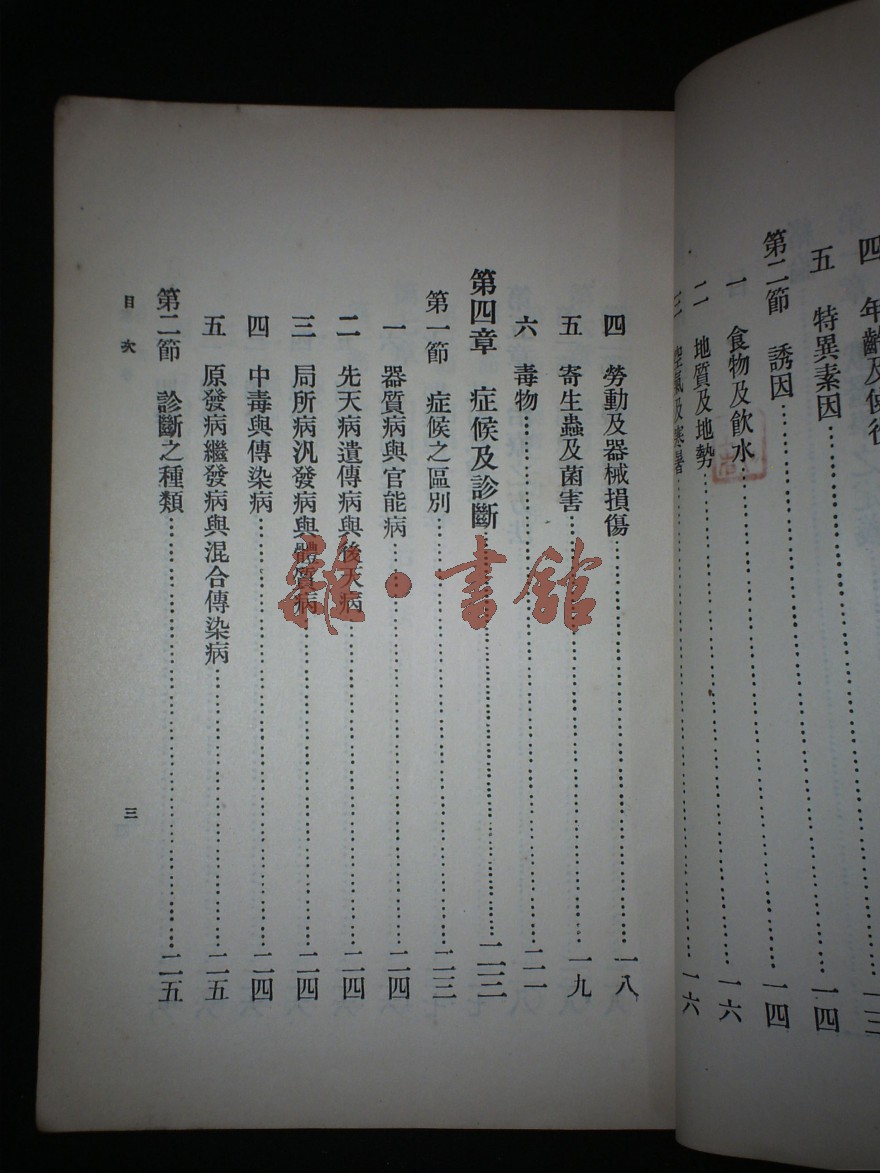 四 年齡及使役……一三
五 特異素因……一四
第二節 誘因……一四
一 食物及飲水……一六
二 地質及地勢
三 空氣及寒暑……一六
四 勞動及器械損傷……一八
五 寄生蟲及菌害……一九
六 毒物……二一
第四章 症候及診斷……二三
第一節 症候之區別……二三
一 器質病與官能病……二四
二 先天病遺傳病與後天病……二四
三 局所病汎發病與體質病……二四
四 中毒與傳染病……二四
五 原發病繼發病與混合傳染病……二五
第二節 診斷之種類……二五
目次
三
雜·書館